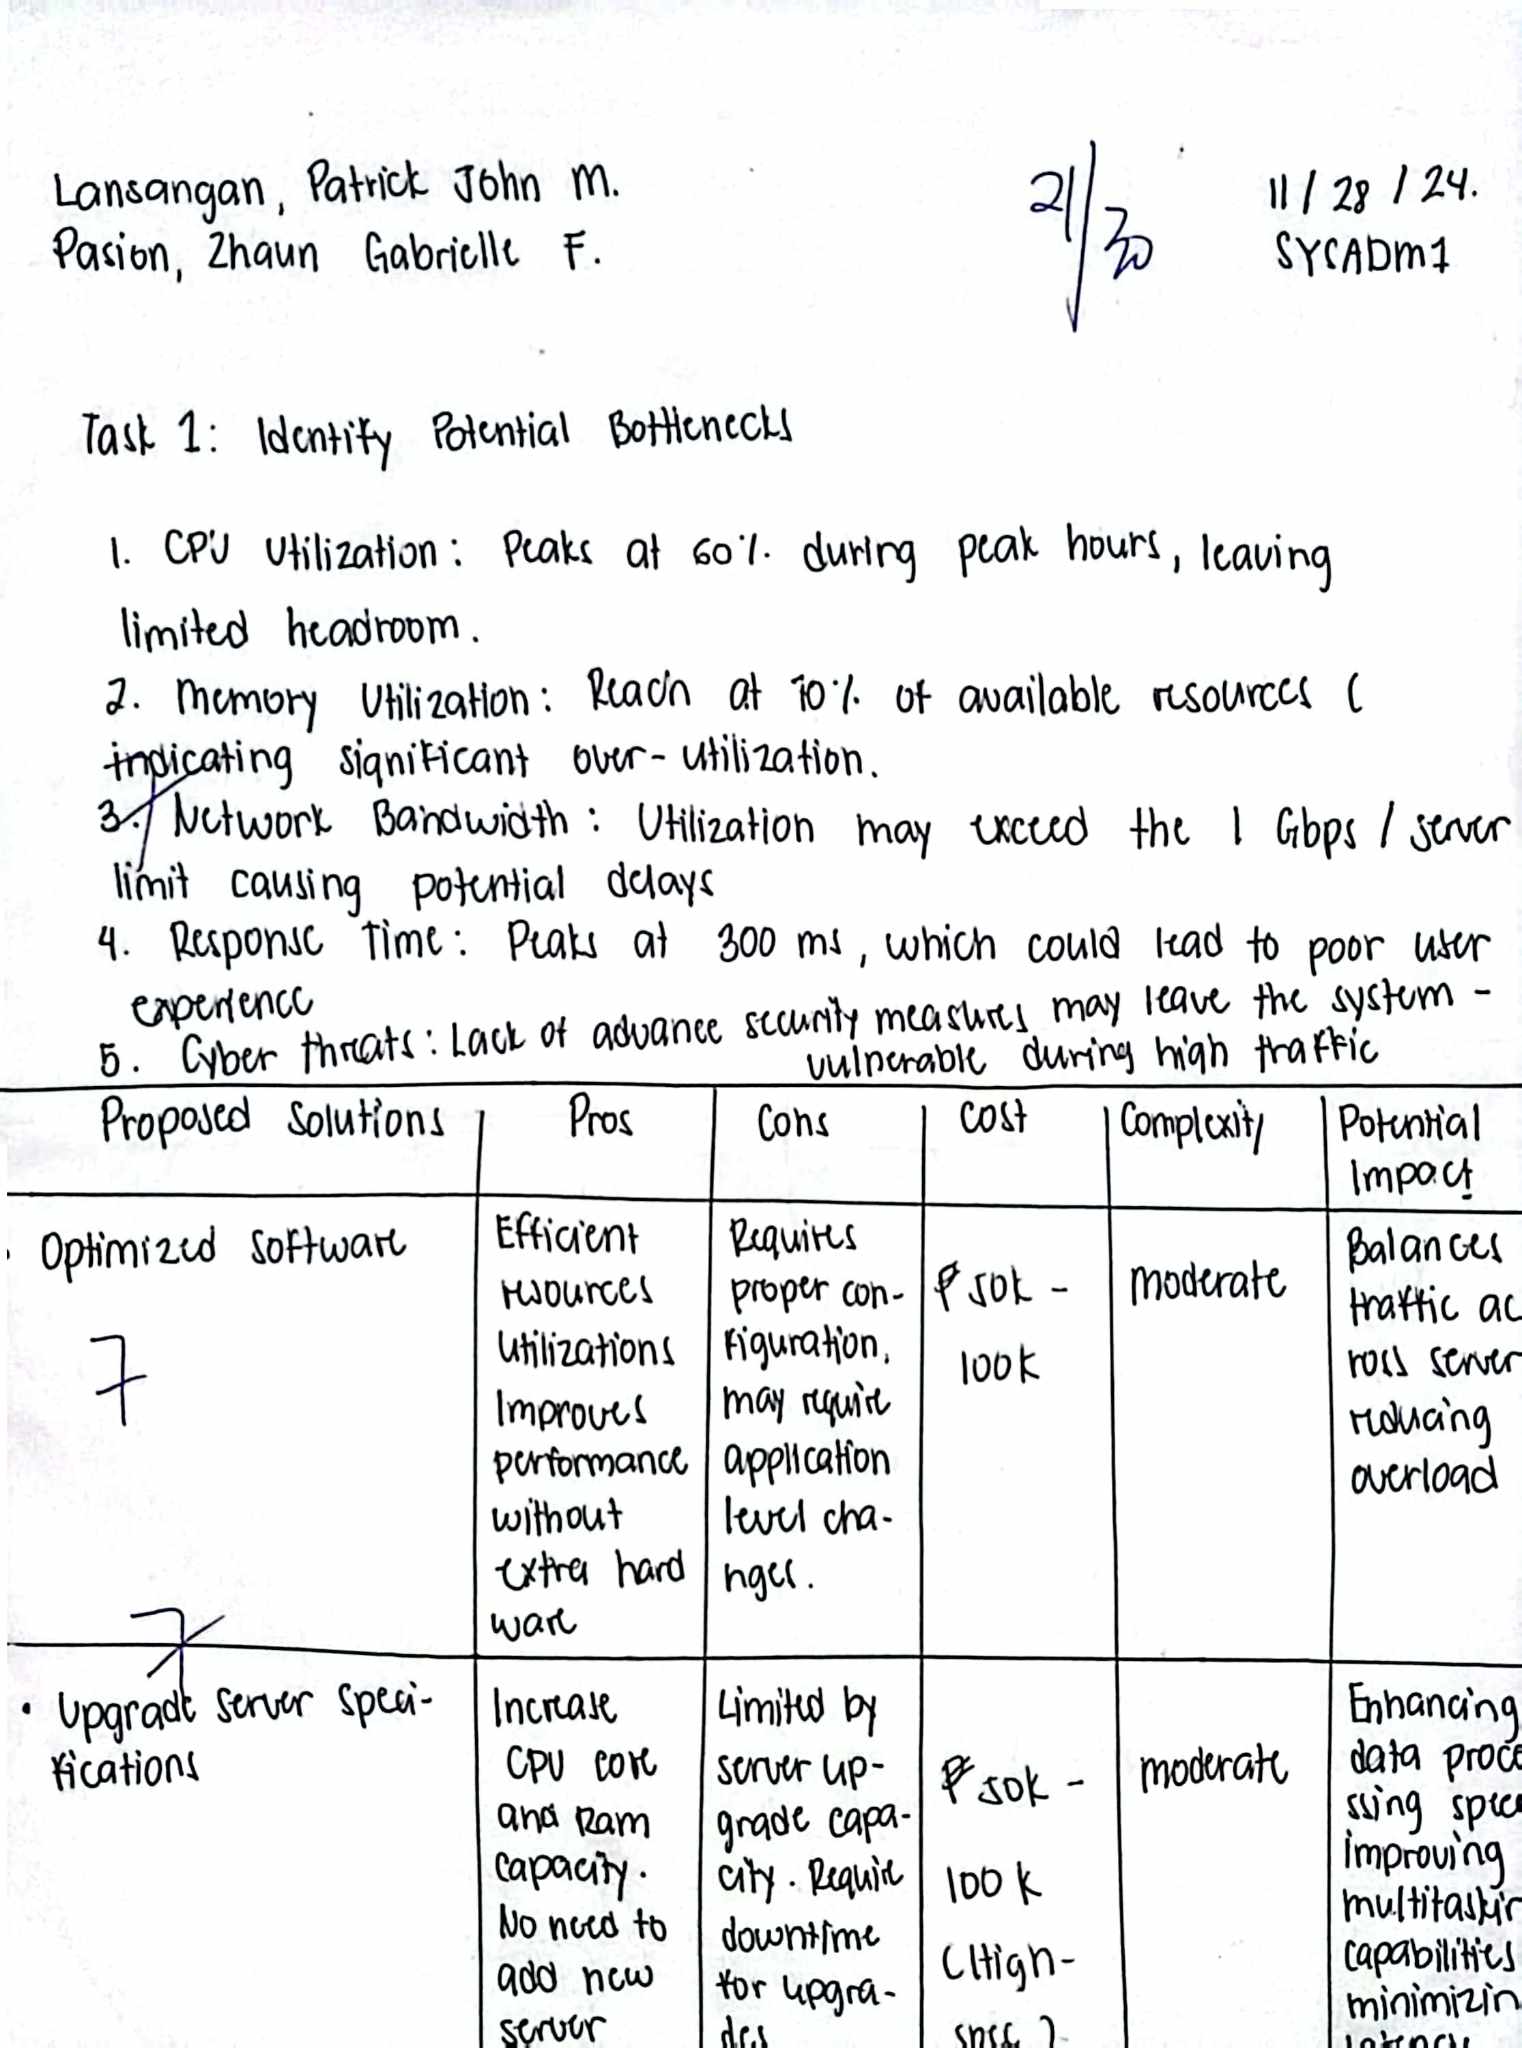 Lansangan, Patrick John M.
Pasion, Zhaun Gabrielle F.
21/30
11/28/24.
SYSADM1
Task 1: Identify Potential Bottlenecks
1. CPU Utilization: Peaks at 60% during peak hours, leaving
limited headroom.
2. Memory Utilization: Reach at 70% of available resources (
indicating significant over-utilization.
3. Network Bandwidth: Utilization may exceed the 1 Gbps/server
limit causing potential delays
4. Response Time: Peaks at 300 ms, which could lead to poor user
experience
5. Cyber threats: Lack of advance security measures may leave the system -
vulnerable during high traffic
Proposed Solutions
Pros
Cons
Cost
Complexity
Potential
Impact
• Optimized software
7
Efficient
resources
utilizations
Improves
performance
without
extra hard
ware
Requires
proper con-
figuration,
may require
application
level cha-
nges.
₱50k -
100k
moderate
Balances
traffic ac
ross server
reducing
overload
7
• Upgrade server speci-
fications
Increase
CPU core
and Ram
capacity.
No need to
add new
server
Limited by
server up-
grade capa-
city. Require
downtime
for upgra-
des
₱50k -
100k
(High-
spec)
moderate
Enhancing
data proce
ssing spee
improving
multitaskin
capabilities
minimizin
latency